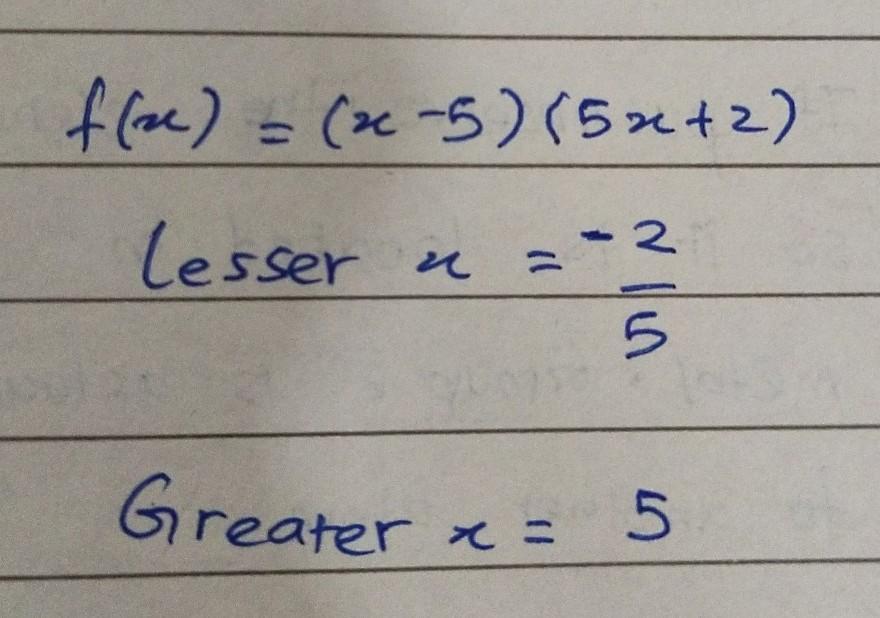 f(x) = (x-5)(5x+2)
lesser x = -2/5
Greater x = 5